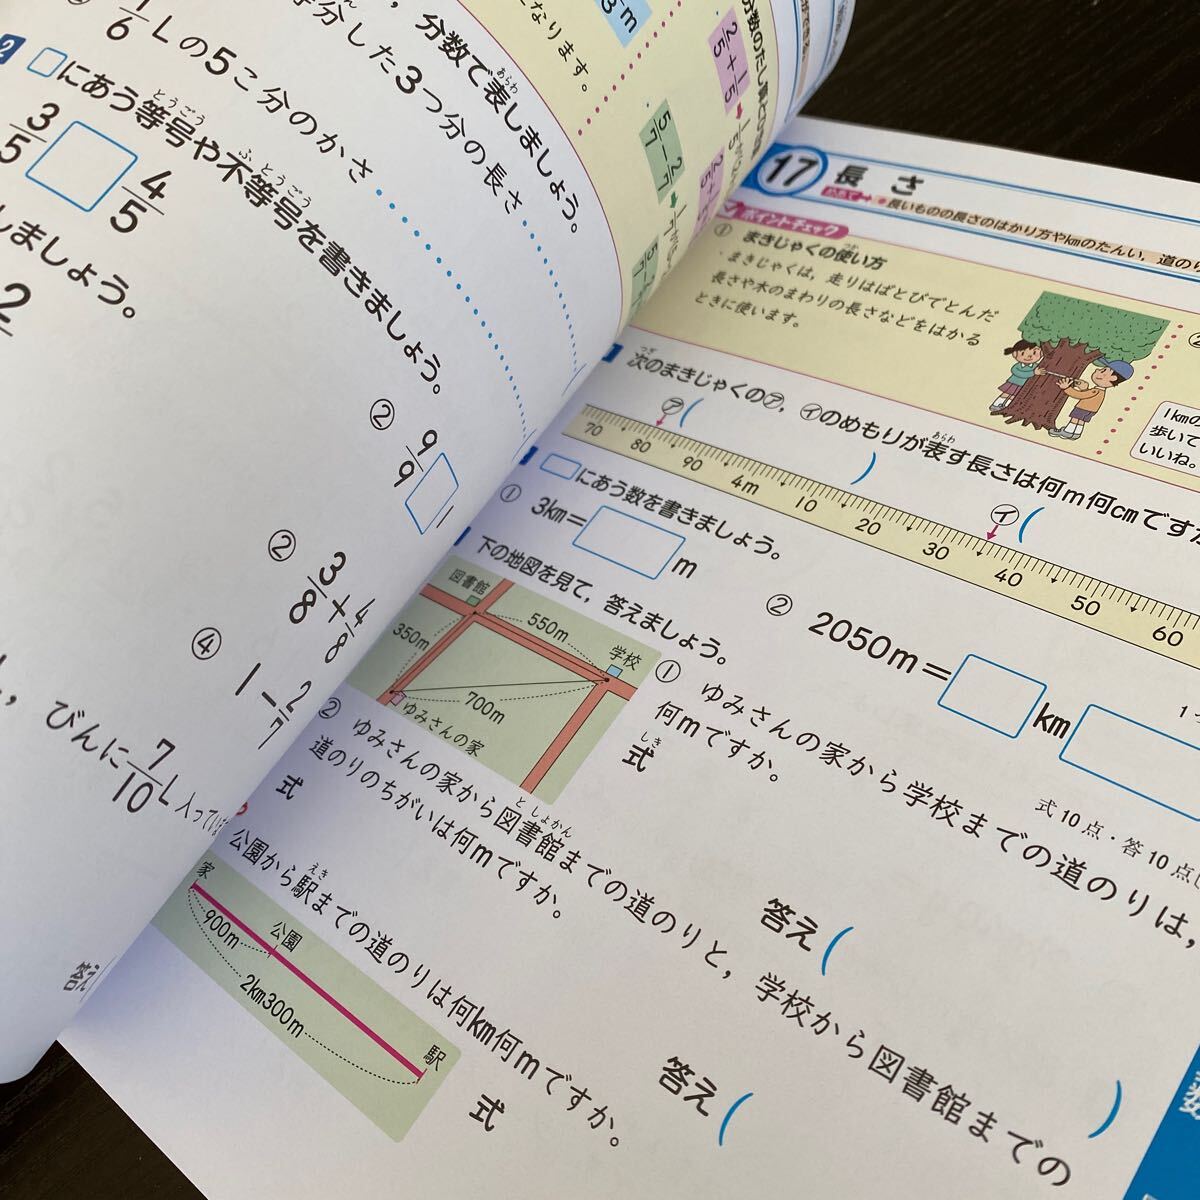 分数で表しましょう。
1/6 Lの5こ分のかさ
等分した3つ分の長さ
2 □にあう等号や不等号を書きましょう。
3/5 □ 4/5
② 9/9 □ 1
しましょう。
② 3/8 + 4/8
④ 1 − 2/7
びんに 7/10 L
答え
なります。
2/5 + 1/5
5/7 − 2/7
17 長さ
長いものの長さのはかり方やkmのたんい，道のり
ポイントチェック
① まきじゃくの使い方
・まきじゃくは，走りはばとびでとんだ
長さや木のまわりの長さなどをはかる
ときに使います。
②
1kmの
歩いて
いいね。
次のまきじゃくの㋐，㋑のめもりが表す長さは何m何cmですか
㋐ (
)
㋑ (
70 80 90 4m 10 20 30 40 50 60
□にあう数を書きましょう。
① 3km＝□m
② 2050m＝□km□
下の地図を見て，答えましょう。
図書館
550m
学校
350m
700m
ゆみさんの家
① ゆみさんの家から学校までの道のりは，
何mですか。
式10点・答10点
式
答え (
② ゆみさんの家から図書館までの道のりと，学校から図書館までの
道のりのちがいは何mですか。
式
答え (
)
公園から駅までの道のりは何km何mですか。
家
900m
公園
2km300m
駅
式